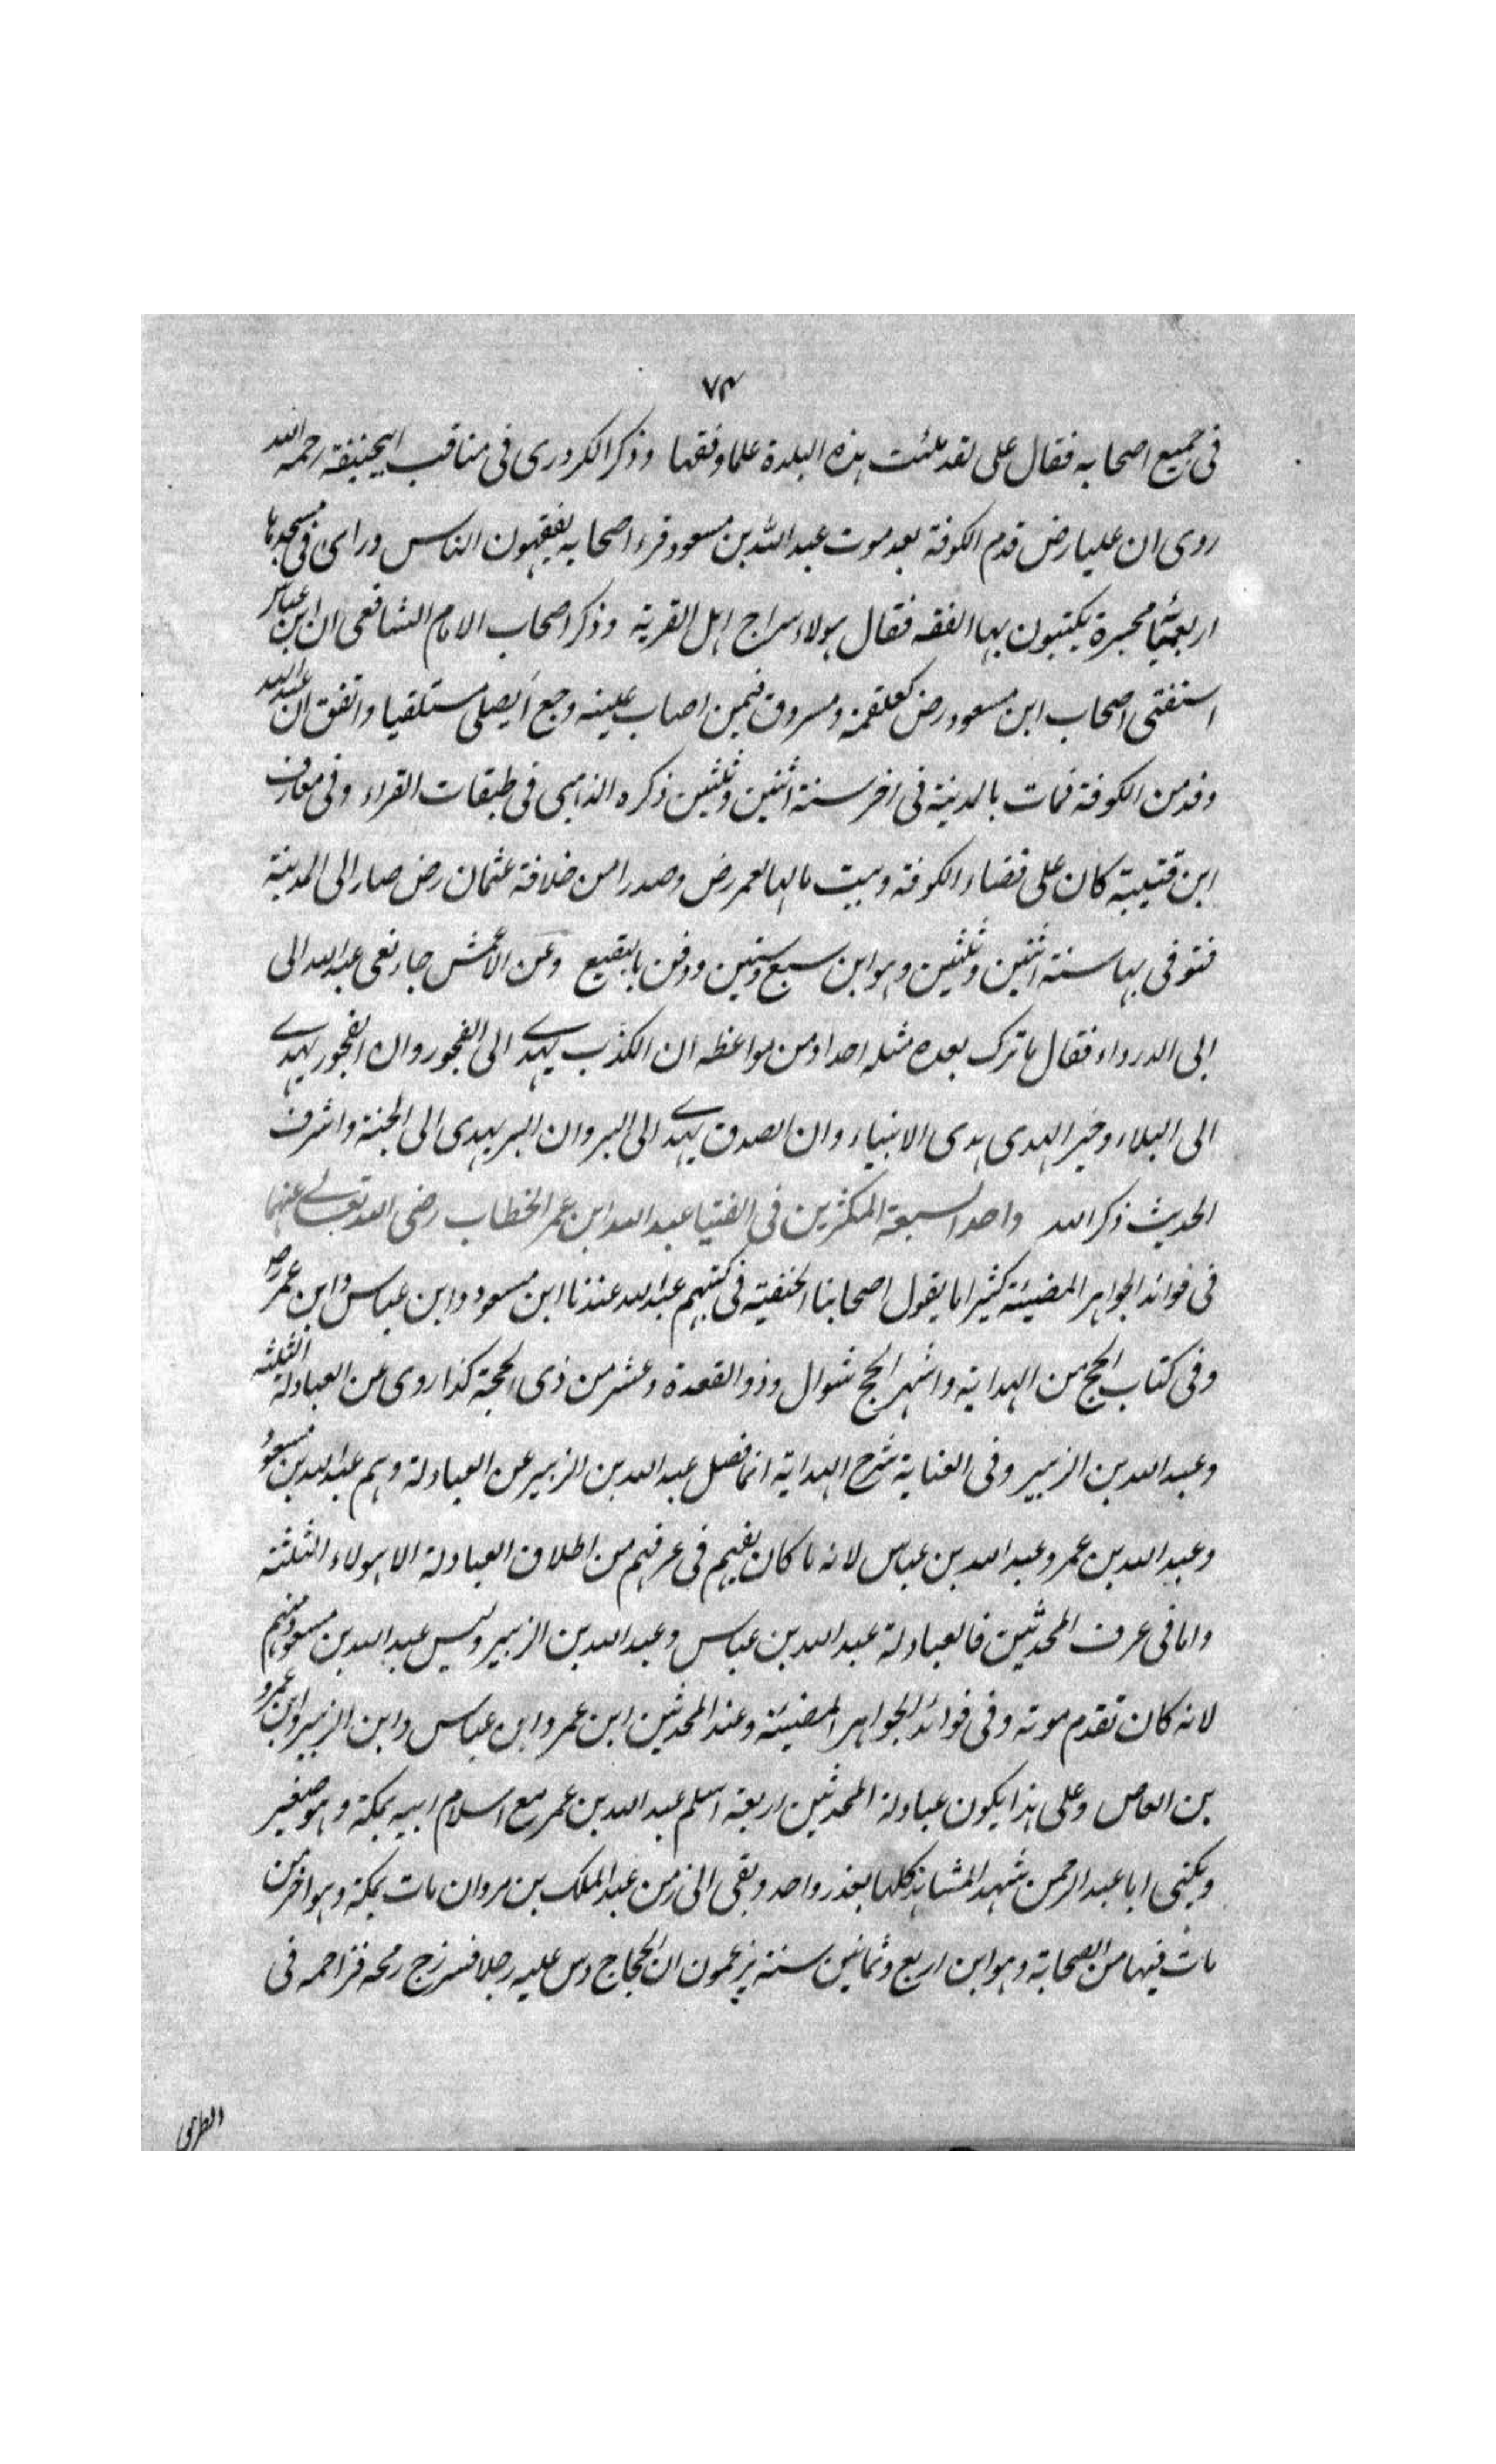 ٧٤
فى جميع اصحابه فقال على لقد ملئت هذه البلدة علما وفقها وذكر الكردرى فى مناقب ابيحنيفة رحمه الله
روى ان عليا رض قدم الكوفة بعد موت عبد الله بن مسعود فرء اصحابه يفقهون الناس وراى فى مسجدها
اربعمائة محبرة يكتبون بها الفقه فقال هولاء سراج اهل القرية وذكر اصحاب الامام الشافعى ان ابن عباس
استفتى اصحاب ابن مسعود رض كعلقمة ومسروق فيمن اصاب عينه وجع أيصلى مستلقيا واتفق ان عبد الله
وفد من الكوفة فمات بالمدينة فى اخر سنة اثنين وثلثين ذكره الذهبى فى طبقات القراء وفى معارف
ابن قتيبة كان على قضاء الكوفة وبيت مالها لعمر رض وصدرا من خلافة عثمان رض صار الى المدينة
فتوفى بها سنة اثنين وثلثين وهو ابن سبع وستين ودفن بالبقيع وعن الاعمش جاء نعى عبد الله الى
ابى الدرداء فقال ما ترك بعده مثله احدا ومن مواعظه ان الكذب يهدے الى الفجور وان الفجور يهدے
الى البلاء وخير الهدى هدى الانبياء وان الصدق يهدے الى البر وان البر يهدى الى الجنة واشرف
الحديث ذكر الله واحد السبعة المكثرين فى الفتيا عبد الله ابن عمر الخطاب رضى الله تعالے عنهما
فى فوائد الجواهر المضيئة كثيرا ما يقول اصحابنا الحنفية فى كتبهم عبد الله عندنا ابن مسعود وابن عباس وابن عمر رض
وفى كتاب الحج من الهداية واشهر الحج شوال وذو القعدة وعشر من ذى الحجة كذا روى عن العبادلة الثلثة
وعبد الله بن الزبير وفى العناية شرح الهداية انما فصل عبد الله بن الزبير عن العبادلة وهم عبد الله بن مسعود
وعبد الله بن عمر وعبد الله بن عباس لانه ما كان يفهم فى عرفهم من اطلاق العبادلة الا هولاء الثلثة
واما فى عرف المحدثين فالعبادلة عبد الله بن عباس وعبد الله بن الزبير وليس عبد الله بن مسعود منهم
لانه كان تقدم موته وفى فوائد الجواهر المضيئة وعند المحدثين ابن عمر وابن عباس وابن الزبير وابن عمرو
بن العاص وعلى هذا يكون عبادلة المحدثين اربعة اسلم عبد الله بن عمر مع اسلام ابيه بمكة وهو صغير
ويكنى ابا عبد الرحمن شهد المشاهد كلها بعذر واحد وبقى الى زمن عبد الملك بن مروان مات بمكة وهو اخر من
مات فيها من الصحابة وهو ابن اربع وثمانين سنة يزعمون ان الحجاج دس عليه رجلا فسم زج رمحه فزاحمه فى